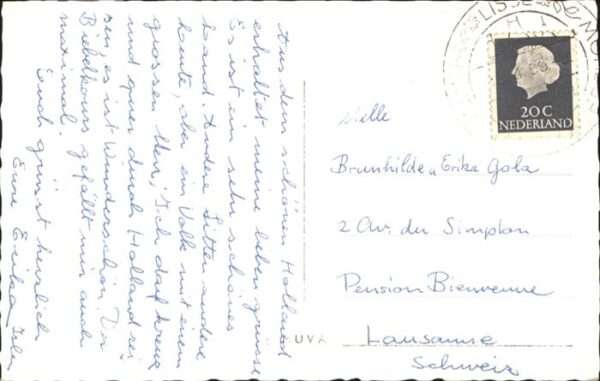 Aus dem schönen Holland
erhaltet meine lieben grüsse
Es ist ein sehr schönes
Land. Andere Sitten andere
Leute, aber ein Volk mit einem
grossen Herz. Ich darf kreuz
und quer durch Holland rei
sen, es ist Wunderschön. Der
Bibelkurs gefällt mir auch
maximal.
Euch grüsst herzlich
Eure Erika
Melle
Brunhilde u Erika Gola
2 Av. du Simplon
Pension Bienvenue
Lausanne
Schweiz
20 C
NEDERLAND
LISSE
UVA